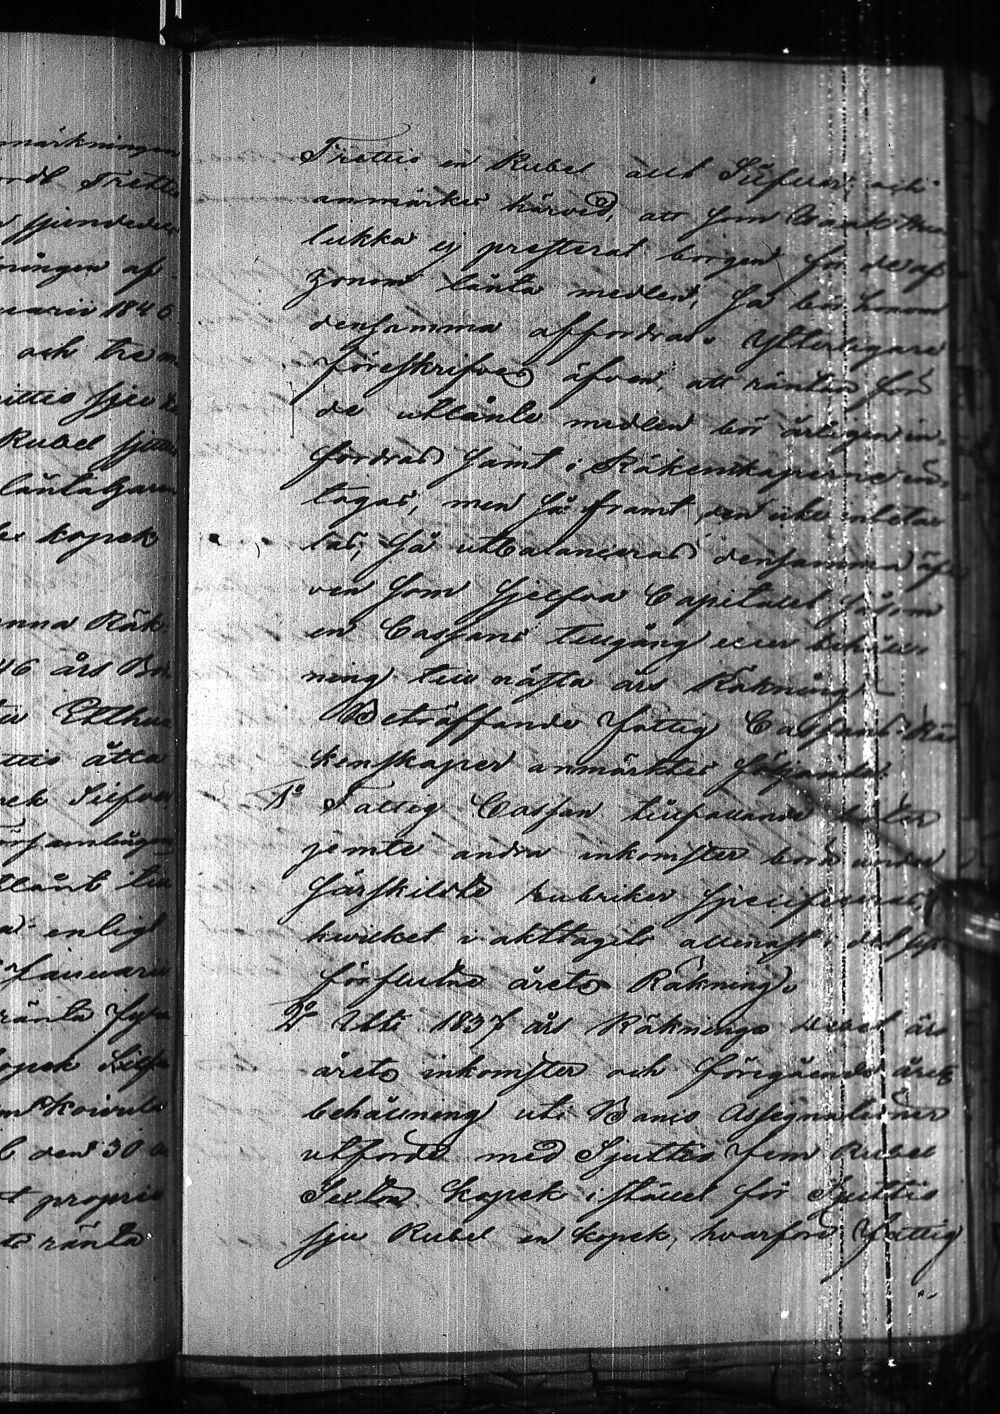 märkningen
ordt Trettio
sjundedels
ningen af
uarii 1846
och tre
ittio sju
Rubel sjuttio
låntagaren
kopek
nna Räk
46 års
Etthun
ttio åtta
ek Silfver
församlingen
tlånt till
enligt
Januarii
ränta fyra
opek Silf
Koivula
den 30
proprie
ränta
Trettio en Rubel allt Silfver, och
anmärkes härvid, att som
lukka ej presterat borgen för de af
honom lånta medlen, så bör honom
densamma affordras. Ytterligare
föreskrifves äfven, att räntan för
de utlånte medlen bör årligen in-
fordras samt i Räkenskaperne in-
tagas, men så framt den icke inbeta-
las, så utbalanceras densamma äf-
ven som sjelfva Capitalet såsom
en Cassans tillgång eller behåll-
ning till nästa års Räkning.
Beträffande Fattig Cassans Rä-
kenskaper anmärktes följande:
1o Fattig Cassan tillfallande böter
jemte andra inkomster borde under
särskildte rubriker specificeras,
hvilket i akttagits allenast i det sist-
förflutne årets Räkning.
2o Uti 1837 års Räknings Debet äro
årets inkomster och föregående årets
behållning uti Banco Assignationer
utförde med Sjuttio fem Rubel
Sexton kopek i stället för Sjuttio
sju Rubel en kopek, hvarföre Fattig